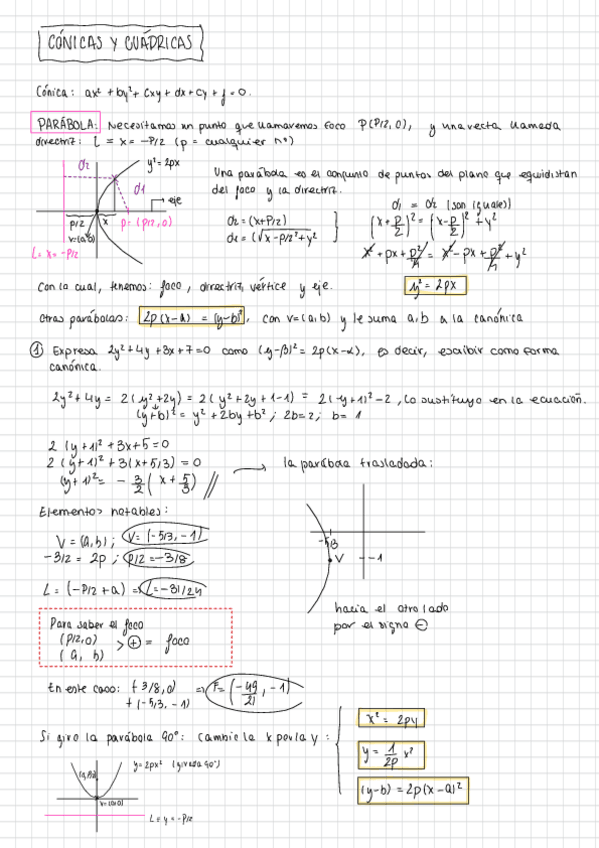 CÓNICAS Y CUÁDRICAS
Cónica: ax² + by² + cxy + dx + cy + f = 0.
PARÁBOLA: Necesitamos un punto que llamaremos foco P(P/2, 0), y una recta llamada
directriz: L = x = -P/2 (p = cualquier nº)
d2
y² = 2px
d1
eje
P/2
x
p = (P/2, 0)
v=(0,0)
L = x = -P/2
Una parábola es el conjunto de puntos del plano que equidistan
del foco y la directriz.
d1 = d2 (son iguales)
d2 = (x+P/2)
d1 = (√x-P/2²+y²
(x+p/2)² = (x-p/2)² + y²
x² + px + p²/4 = x² - px + p²/4 + y²
y² = 2px
Con lo cual, tenemos: foco, directriz, vértice y eje.
Otras parábolas: 2p(x-a) = (y-b)², con v=(a,b) y le suma a,b a la canónica
1 Expresa 2y²+4y+3x+7=0 como (y-β)² = 2p(x-α), es decir, escribir como forma
canónica.
2y²+4y = 2(y²+2y) = 2(y²+2y+1-1) = 2(y+1)²-2, lo sustituyo en la ecuación.
(y+b)² = y²+2by+b²; 2b=2; b=1
2(y+1)²+3x+5=0
2(y+1)²+3(x+5/3)=0
(y+1)² = -3/2(x+5/3)
la parábola trasladada:
Elementos notables:
V = (a,b); V=(-5/3,-1)
-3/2 = 2p; P/2=-3/8
L = (-P/2+a) = L=-31/24
-5/3
V
-1
hacia el otro lado
por el signo ⊖
Para saber el foco
(P/2,0)
(a, b)
> ⊕ = foco
En este caso: (-3/8,0)
+(-5/3,-1)
⇒ F=(-49/21, -1)
Si giro la parábola 90º: cambie la x por la y:
x² = 2py
y = 1/2p x²
(y-b) = 2p(x-a)²
y=2px² (girada 90º)
v=(0,0)
L = y = -P/2